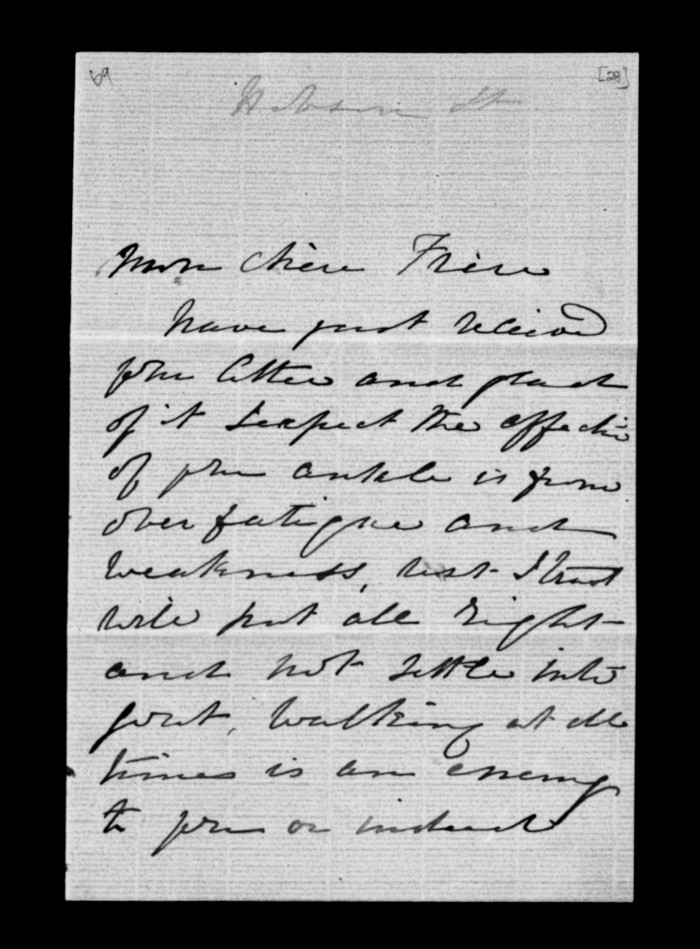 69 [28]
Hobson St
Mon chère Frère
have just recieved
your letter and glad
of it I expect the affection
of your ankle is from
over fatigue and
weakness, rest I trust
will put all right
and not settle into
gout, walking at all
times is an enemy
to you or indeed